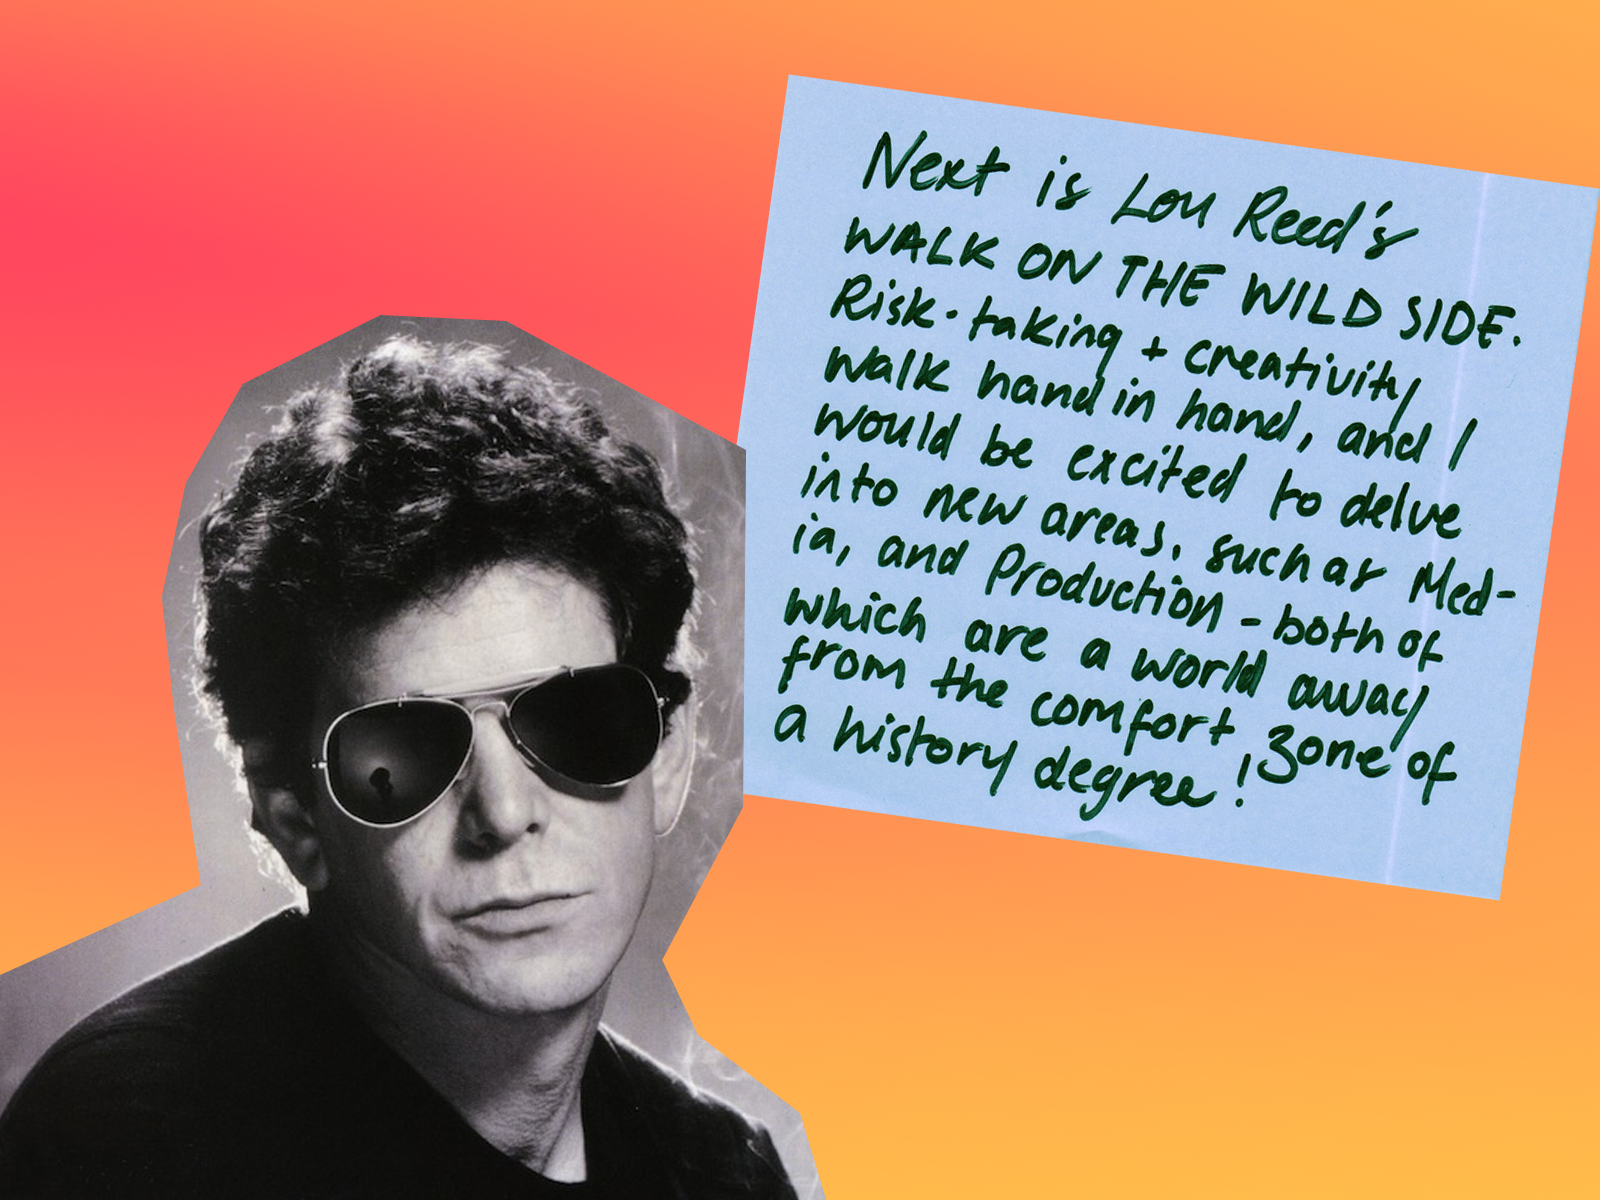 Next is Lou Reed's
WALK ON THE WILD SIDE.
Risk-taking + creativity
walk hand in hand, and I
would be excited to delve
into new areas, such as Med-
ia, and Production - both of
which are a world away
from the comfort zone of
a history degree!